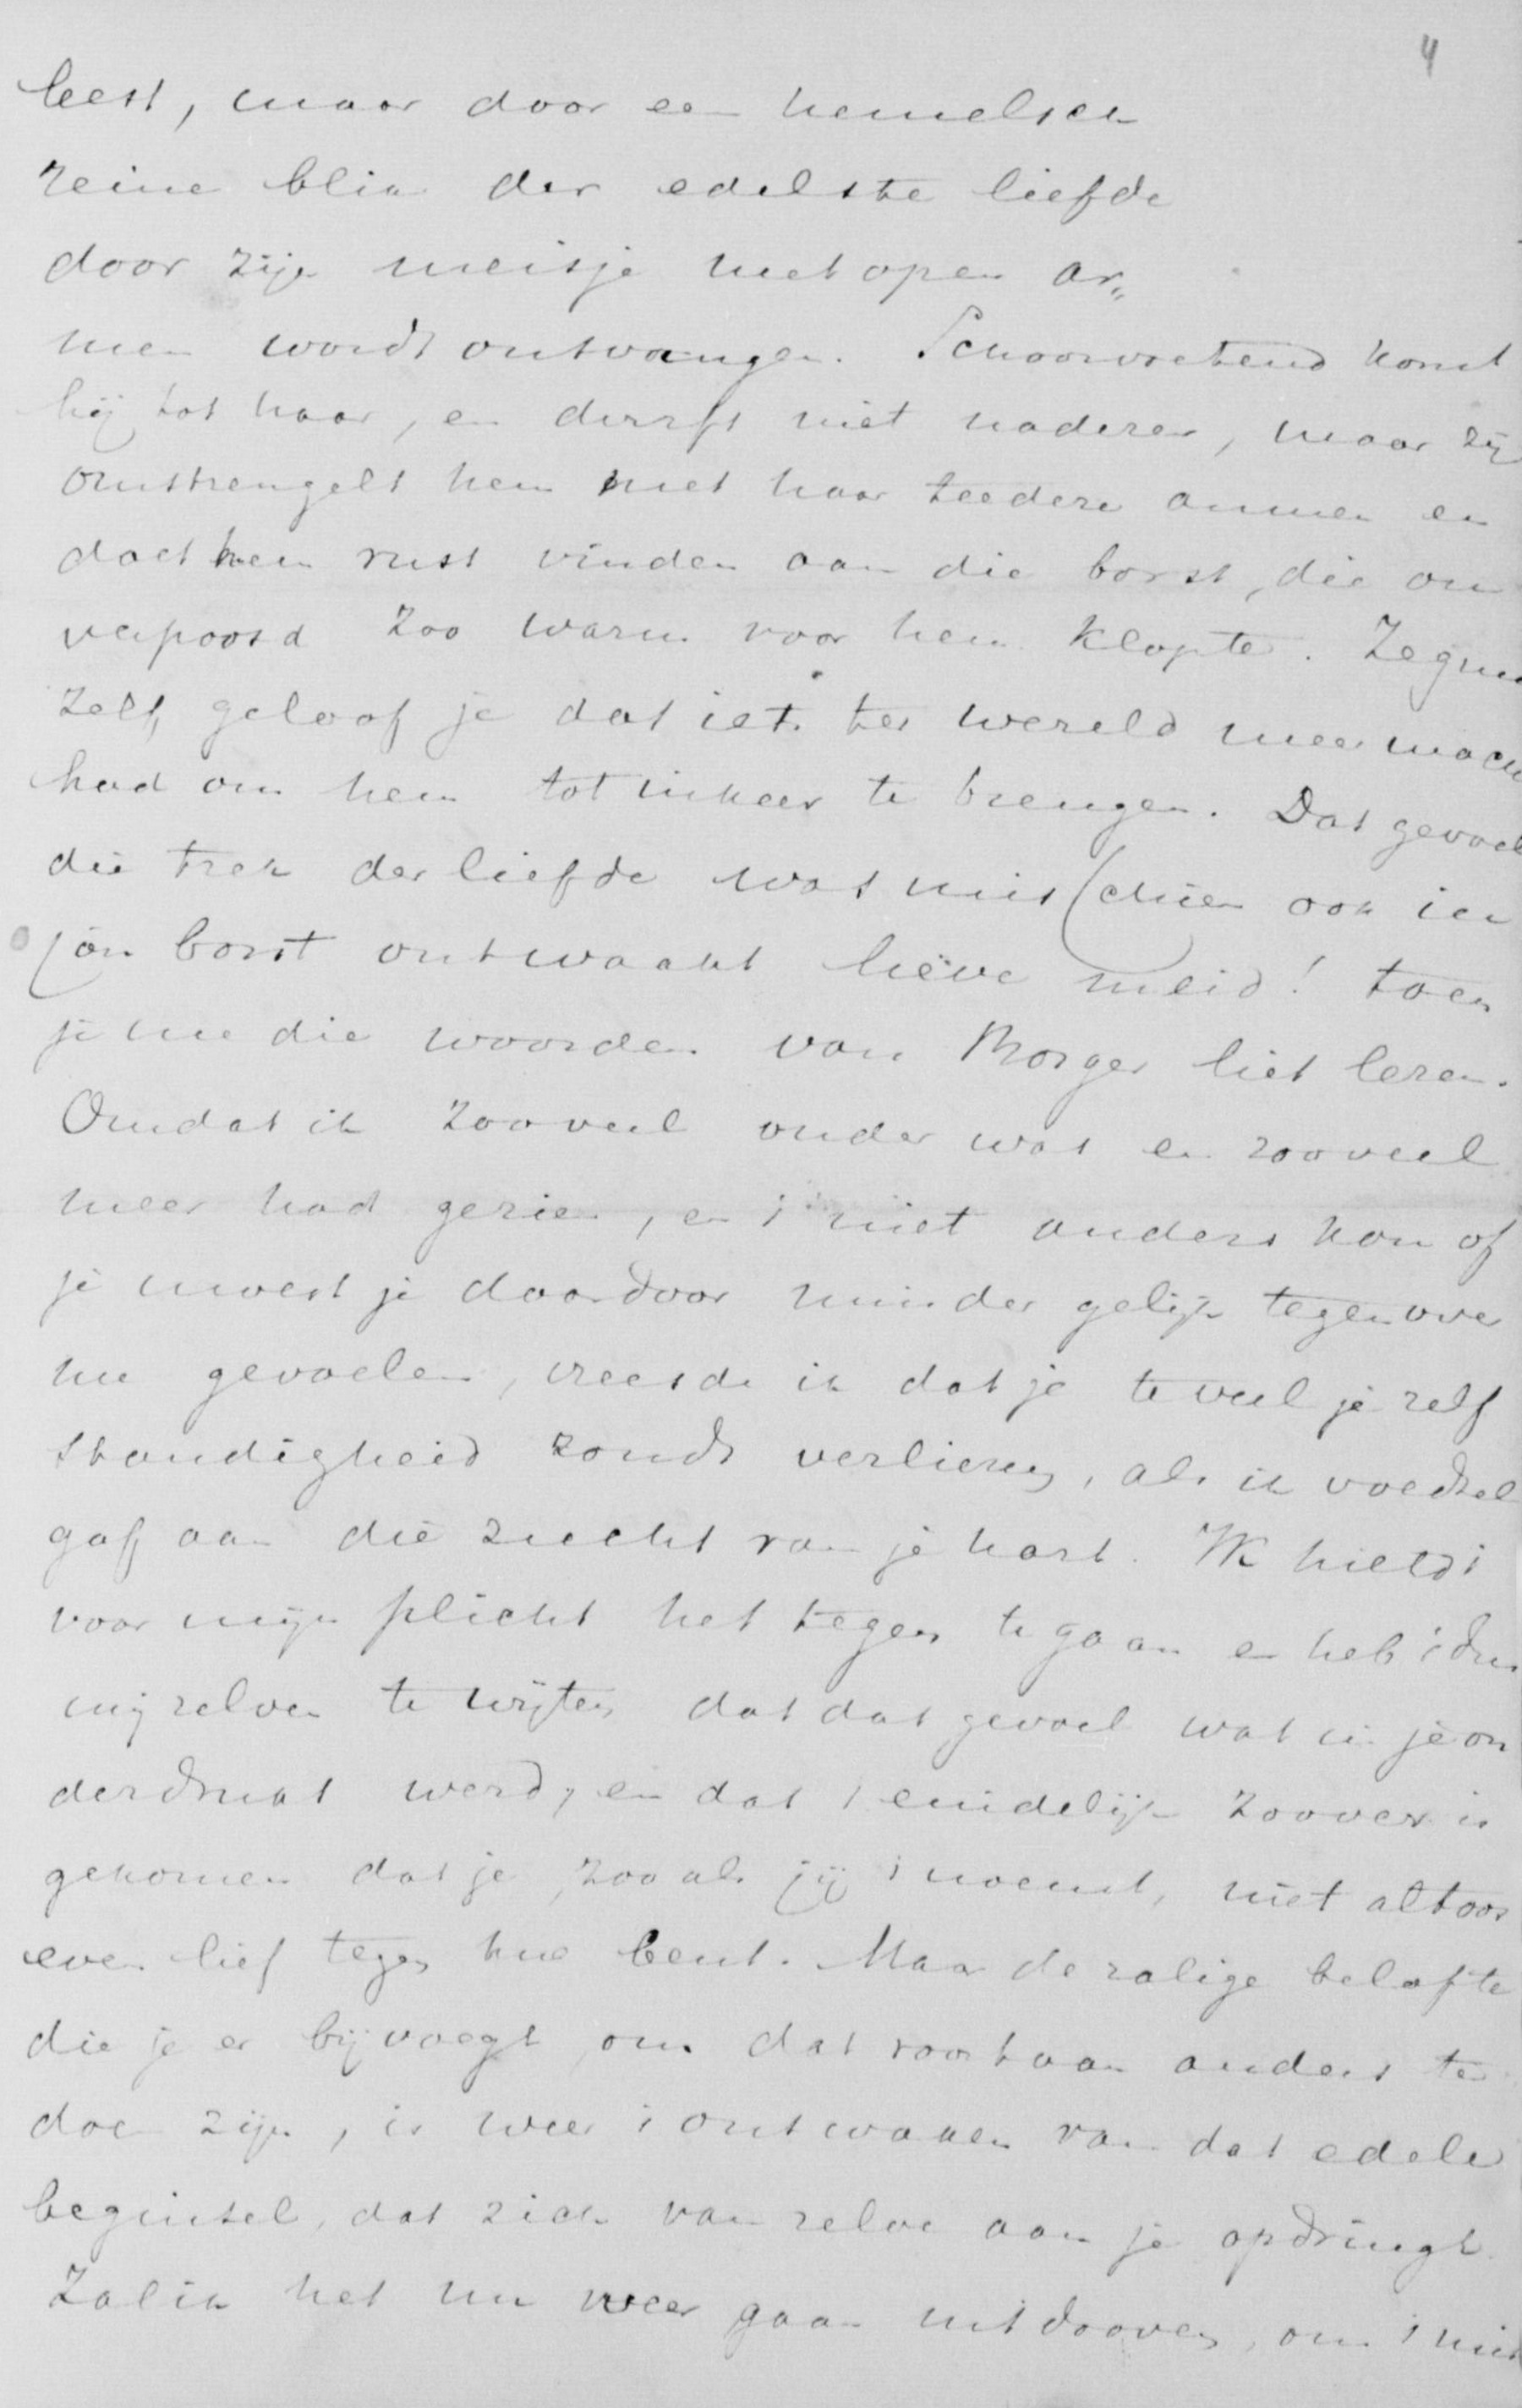 4
leest, maar door een hemelsch
reine blik der edelste liefde
door zijn meisje met open ar„
men wordt ontvangen. Schoorvoetend komt
hij tot haar, en durft niet naderen, maar zij
omstrengelt hem met haar teedere armen en
doet hem rust vinden aan die borst, die on
verpoosd zoo warm voor hem klopte. Zeg me
zelf, geloof je dat iets ter wereld meer mach
had om hem tot inkeer te brengen. Dat gevoel
die trek der liefde was misschien ook in
jou borst ontwaakt lieve meid! toen
je me die woorden van Borger liet lezen.
Omdat ik zooveel ouder was en zooveel
meer had gezien, en 't niet anders kon of
je moest je daardoor minder gelijk tegenover
me gevoelen, vreesde ik dat je te veel je zelf
standigheid zoudt verliezen, als ik voedsel
gaf aan die zucht van je hart. Ik hield 't
voor mijn plicht het tegen te gaan en heb 't dus
mij zelven te wijten dat dat gevoel wat in je on
derdrukt werd, en dat 't eindelijk zoover is
gekomen dat je, zooals jij 't noemt, niet altoos
even lief tegen me bent. Maar de zalige belofte
die je er bijvoegt om dat voortaan anders te
doen zijn, is weer 't ontwaken van dat edele
beginsel, dat zich van zelve aan je opdringt.
Zal ik het nu weer gaan uitdooven, om 't